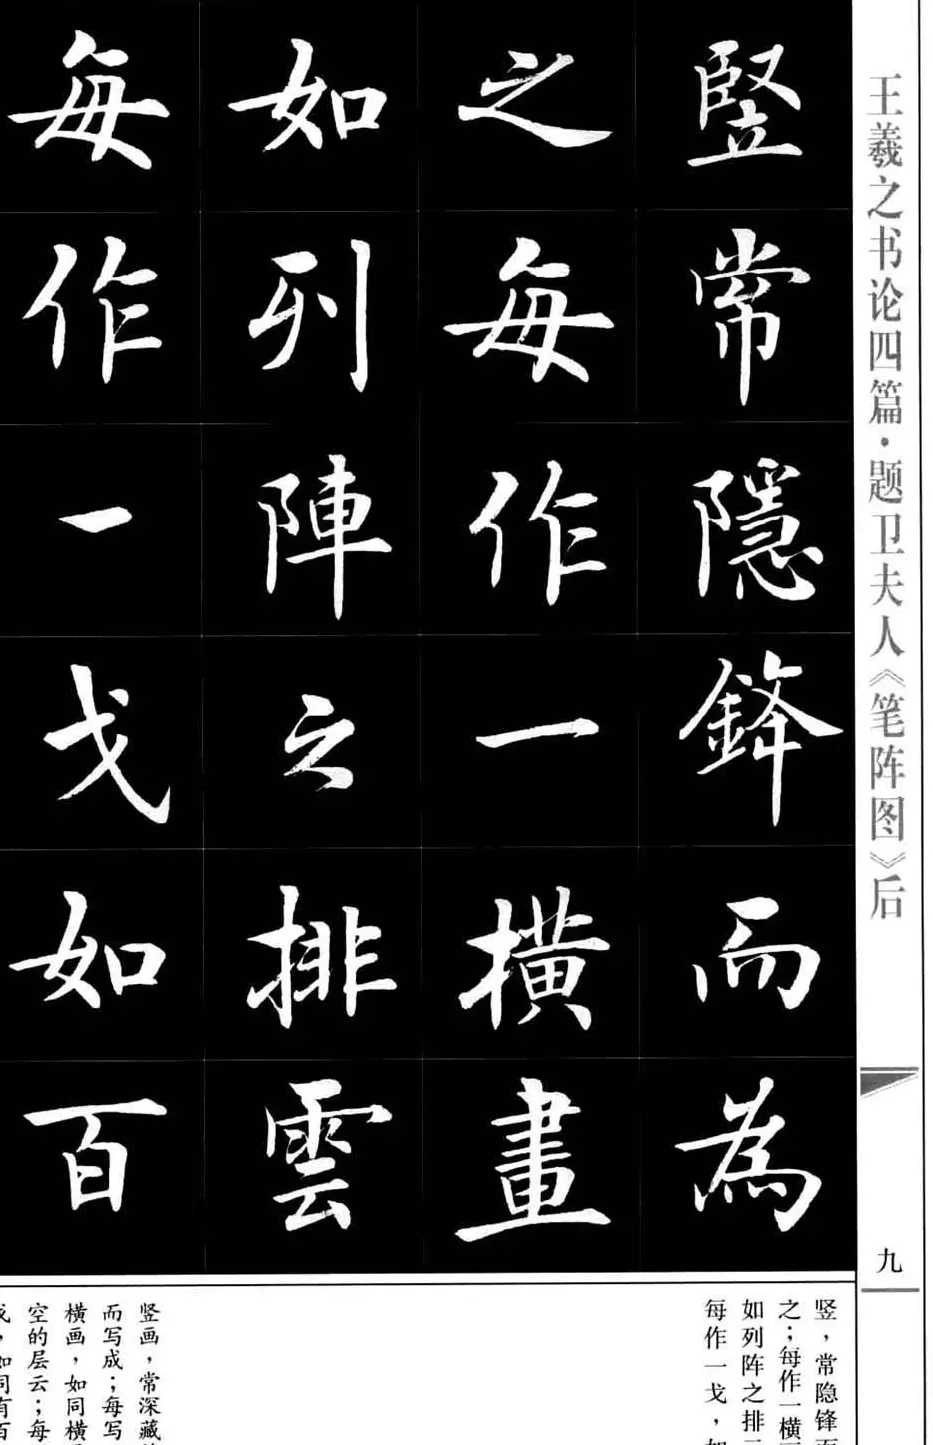 王羲之书论四篇·题卫夫人《笔阵图》后
九
竖常隱鋒而為
之每作一橫畫
如列陣之排雲
每作一戈如百
竖，常隐锋而
之；每作一横画
如列阵之排云
每作一戈，如
竖画，常深藏
而写成；每写
横画，如同横
空的层云；每
戈，如同有百